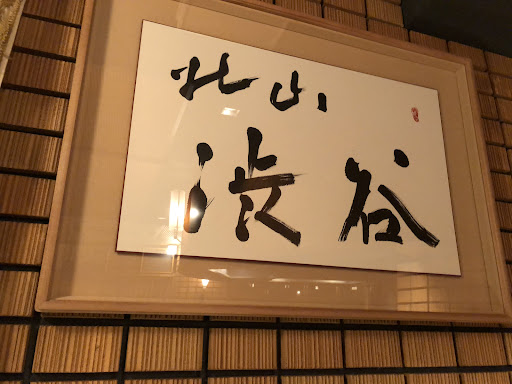 北山
渋谷